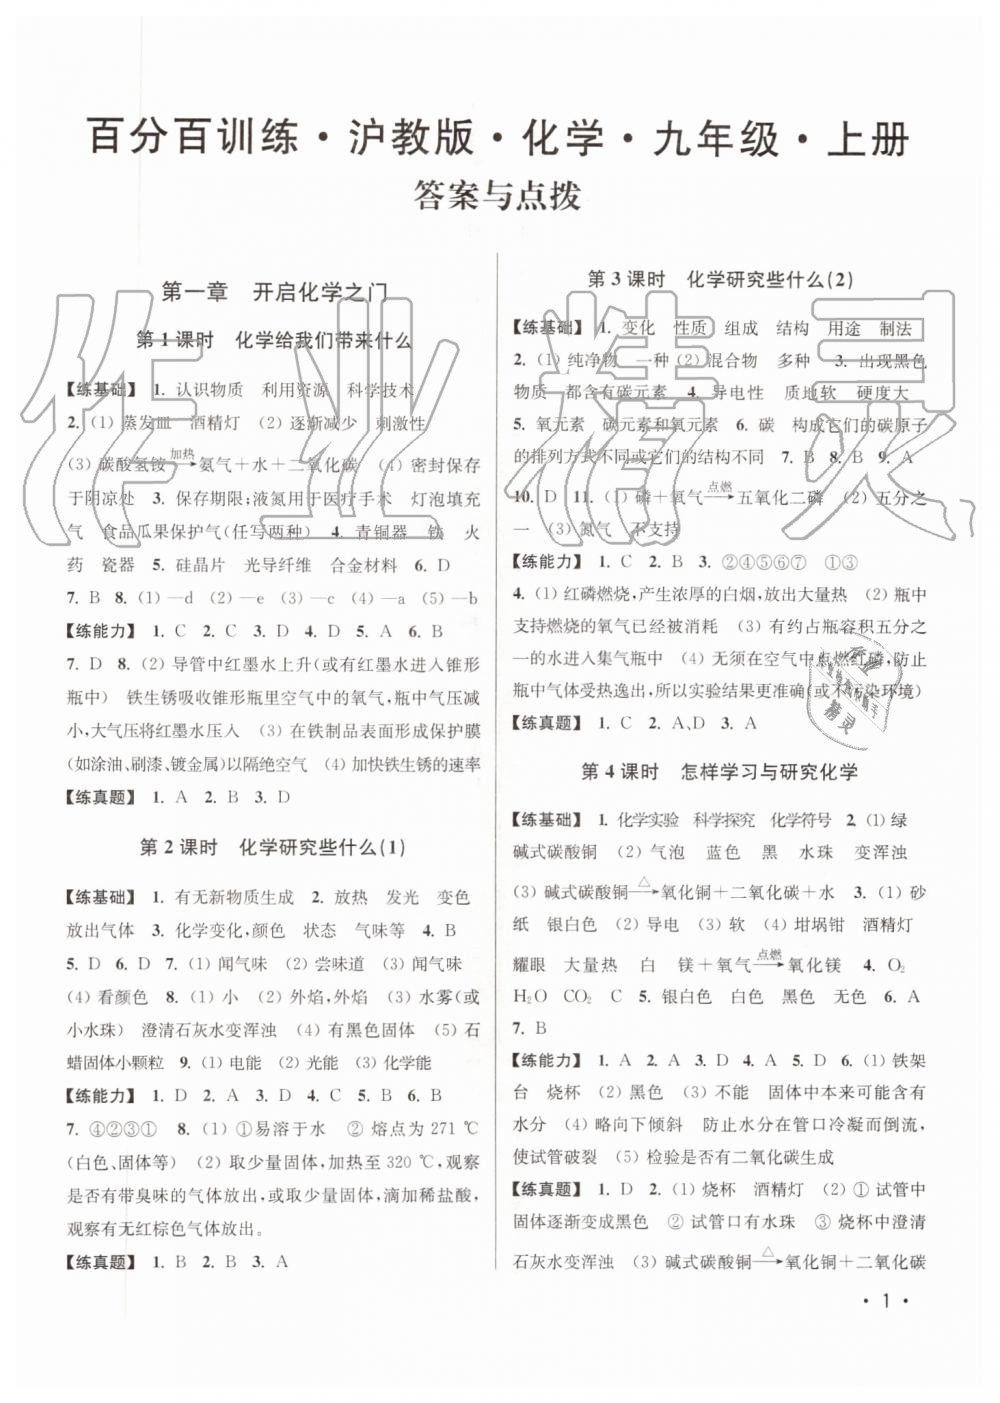 百分百训练·沪教版·化学·九年级·上册
答案与点拨
第一章 开启化学之门
第1课时 化学给我们带来什么
【练基础】 1. 认识物质 利用资源 科学技术
2. (1) 蒸发皿 酒精灯 (2) 逐渐减少 刺激性
(3) 碳酸氢铵 加热→ 氨气＋水＋二氧化碳 (4) 密封保存
于阴凉处 3. 保存期限;液氮用于医疗手术 灯泡填充
气 食品瓜果保护气(任写两种) 4. 青铜器 铁 火
药 瓷器 5. 硅晶片 光导纤维 合金材料 6. D
7. B 8. (1)—d (2)—e (3)—c (4)—a (5)—b
【练能力】 1. C 2. C 3. D 4. D 5. A 6. B
7. D 8. (2) 导管中红墨水上升(或有红墨水进入锥形
瓶中) 铁生锈吸收锥形瓶里空气中的氧气,瓶中气压减
小,大气压将红墨水压入 (3) 在铁制品表面形成保护膜
(如涂油、刷漆、镀金属)以隔绝空气 (4) 加快铁生锈的速率
【练真题】 1. A 2. B 3. D
第2课时 化学研究些什么(1)
【练基础】 1. 有无新物质生成 2. 放热 发光 变色
放出气体 3. 化学变化,颜色 状态 气味等 4. B
5. D 6. D 7. (1) 闻气味 (2) 尝味道 (3) 闻气味
(4) 看颜色 8. (1) 小 (2) 外焰,外焰 (3) 水雾(或
小水珠) 澄清石灰水变浑浊 (4) 有黑色固体 (5) 石
蜡固体小颗粒 9. (1) 电能 (2) 光能 (3) 化学能
【练能力】 1. D 2. A 3. D 4. C 5. B 6. B
7. ④②③① 8. (1) ①易溶于水 ② 熔点为271 ℃
(白色、固体等) (2) 取少量固体,加热至320 ℃,观察
是否有带臭味的气体放出,或取少量固体,滴加稀盐酸,
观察有无红棕色气体放出。
【练真题】 1. B 2. B 3. A
第3课时 化学研究些什么(2)
【练基础】 1. 变化 性质 组成 结构 用途 制法
2. (1) 纯净物 一种 (2) 混合物 多种 3. 出现黑色
物质 一都含有碳元素 4. 导电性 质地软 硬度大
5. 氧元素 碳元素和氧元素 6. 碳 构成它们的碳原子
的排列方式不同或它们的结构不同 7. B 8. B 9. A
10. D 11. (1) 磷＋氧气 点燃→ 五氧化二磷 (2) 五分之
一 (3) 氮气 不支持
【练能力】 1. C 2. B 3. ②④⑤⑥⑦ ①③
4. (1) 红磷燃烧,产生浓厚的白烟,放出大量热 (2) 瓶中
支持燃烧的氧气已经被消耗 (3) 有约占瓶容积五分之
一的水进入集气瓶中 (4) 无须在空气中点燃红磷,防止
瓶中气体受热逸出,所以实验结果更准确(或不污染环境)
【练真题】 1. C 2. A、D 3. A
第4课时 怎样学习与研究化学
【练基础】 1. 化学实验 科学探究 化学符号 2. (1) 绿
碱式碳酸铜 (2) 气泡 蓝色 黑 水珠 变浑浊
(3) 碱式碳酸铜 △→ 氧化铜＋二氧化碳＋水 3. (1) 砂
纸 银白色 (2) 导电 (3) 软 (4) 坩埚钳 酒精灯
耀眼 大量热 白 镁＋氧气 点燃→ 氧化镁 4. O₂
H₂O CO₂ C 5. 银白色 白色 黑色 无色 6. A
7. B
【练能力】 1. A 2. A 3. D 4. A 5. D 6. (1) 铁架
台 烧杯 (2) 黑色 (3) 不能 固体中本来可能含有
水分 (4) 略向下倾斜 防止水分在管口冷凝而倒流,
使试管破裂 (5) 检验是否有二氧化碳生成
【练真题】 1. D 2. (1) 烧杯 酒精灯 (2) ① 试管中
固体逐渐变成黑色 ② 试管口有水珠 ③ 烧杯中澄清
石灰水变浑浊 (3) 碱式碳酸铜 △→ 氧化铜＋二氧化碳
· 1 ·
作业精灵